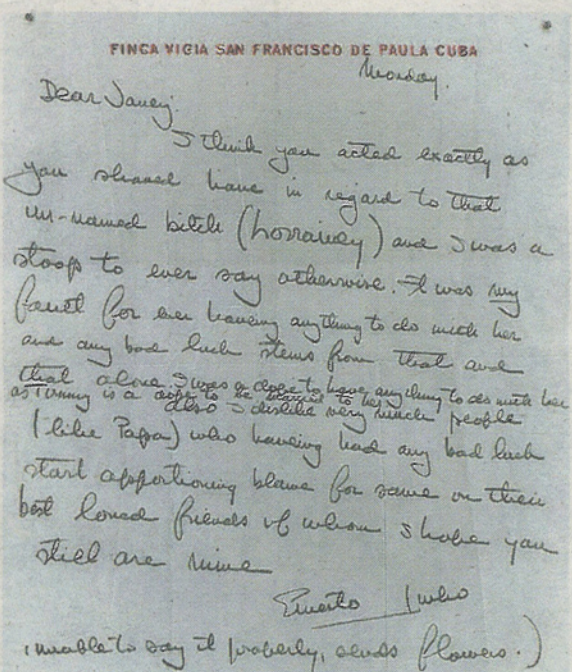 FINCA VIGIA SAN FRANCISCO DE PAULA CUBA
Monday.
Dear Janey:
I think you acted exactly as
you should have in regard to that
un-named bitch (horraney) and I was a
stoop to ever say otherwise. It was my
fault for ever having anything to do with her
and any bad luck stems from that and
that alone. I was a dope to have anything to do with her
as Tommy is a dope to be married to her
also I dislike very much people
(like Papa) who having had any bad luck
start apportioning blame for same on their
best loved friends of whom I hope you
still are mine
Ernesto (who
unable to say it properly, sends flowers.)